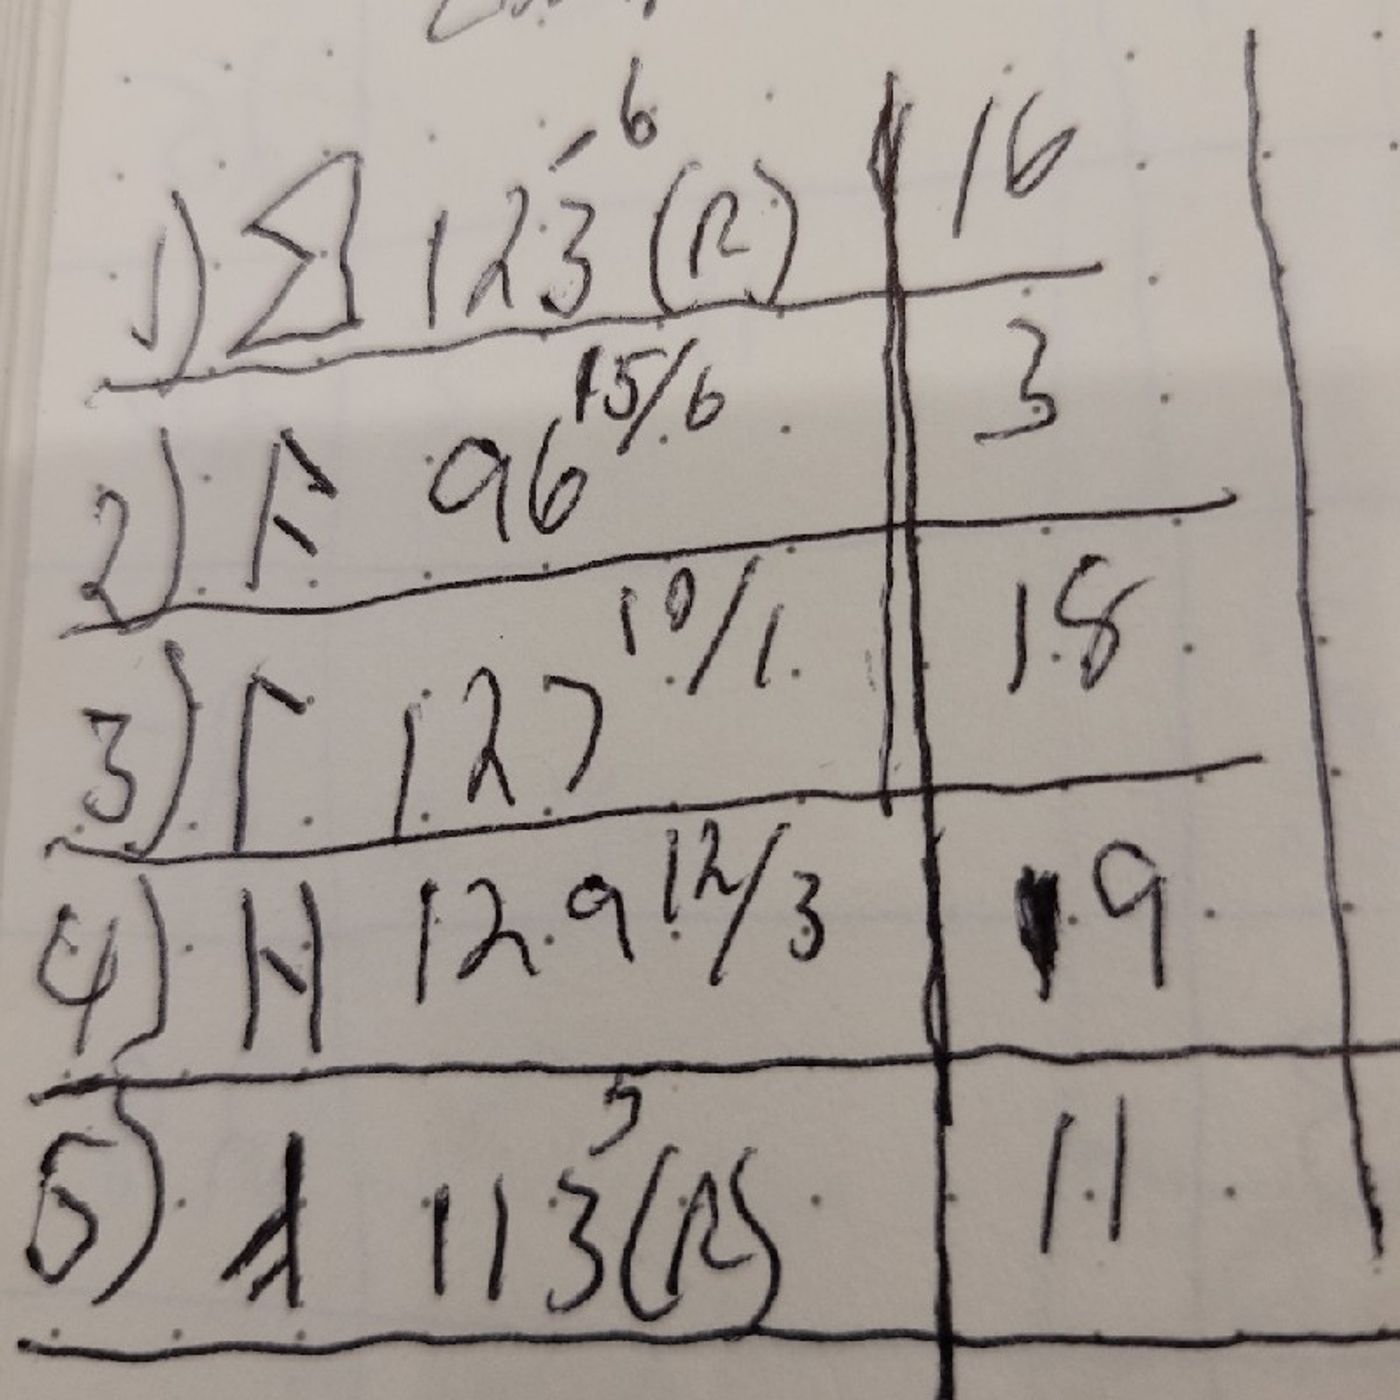 1) ᛊ 123⁻⁶ (R) 16
2) ᚨ 96 15/6 3
3) ᛚ 127 10/1 18
4) ᚺ 129 12/3 19
5) 113⁵ (R) 11